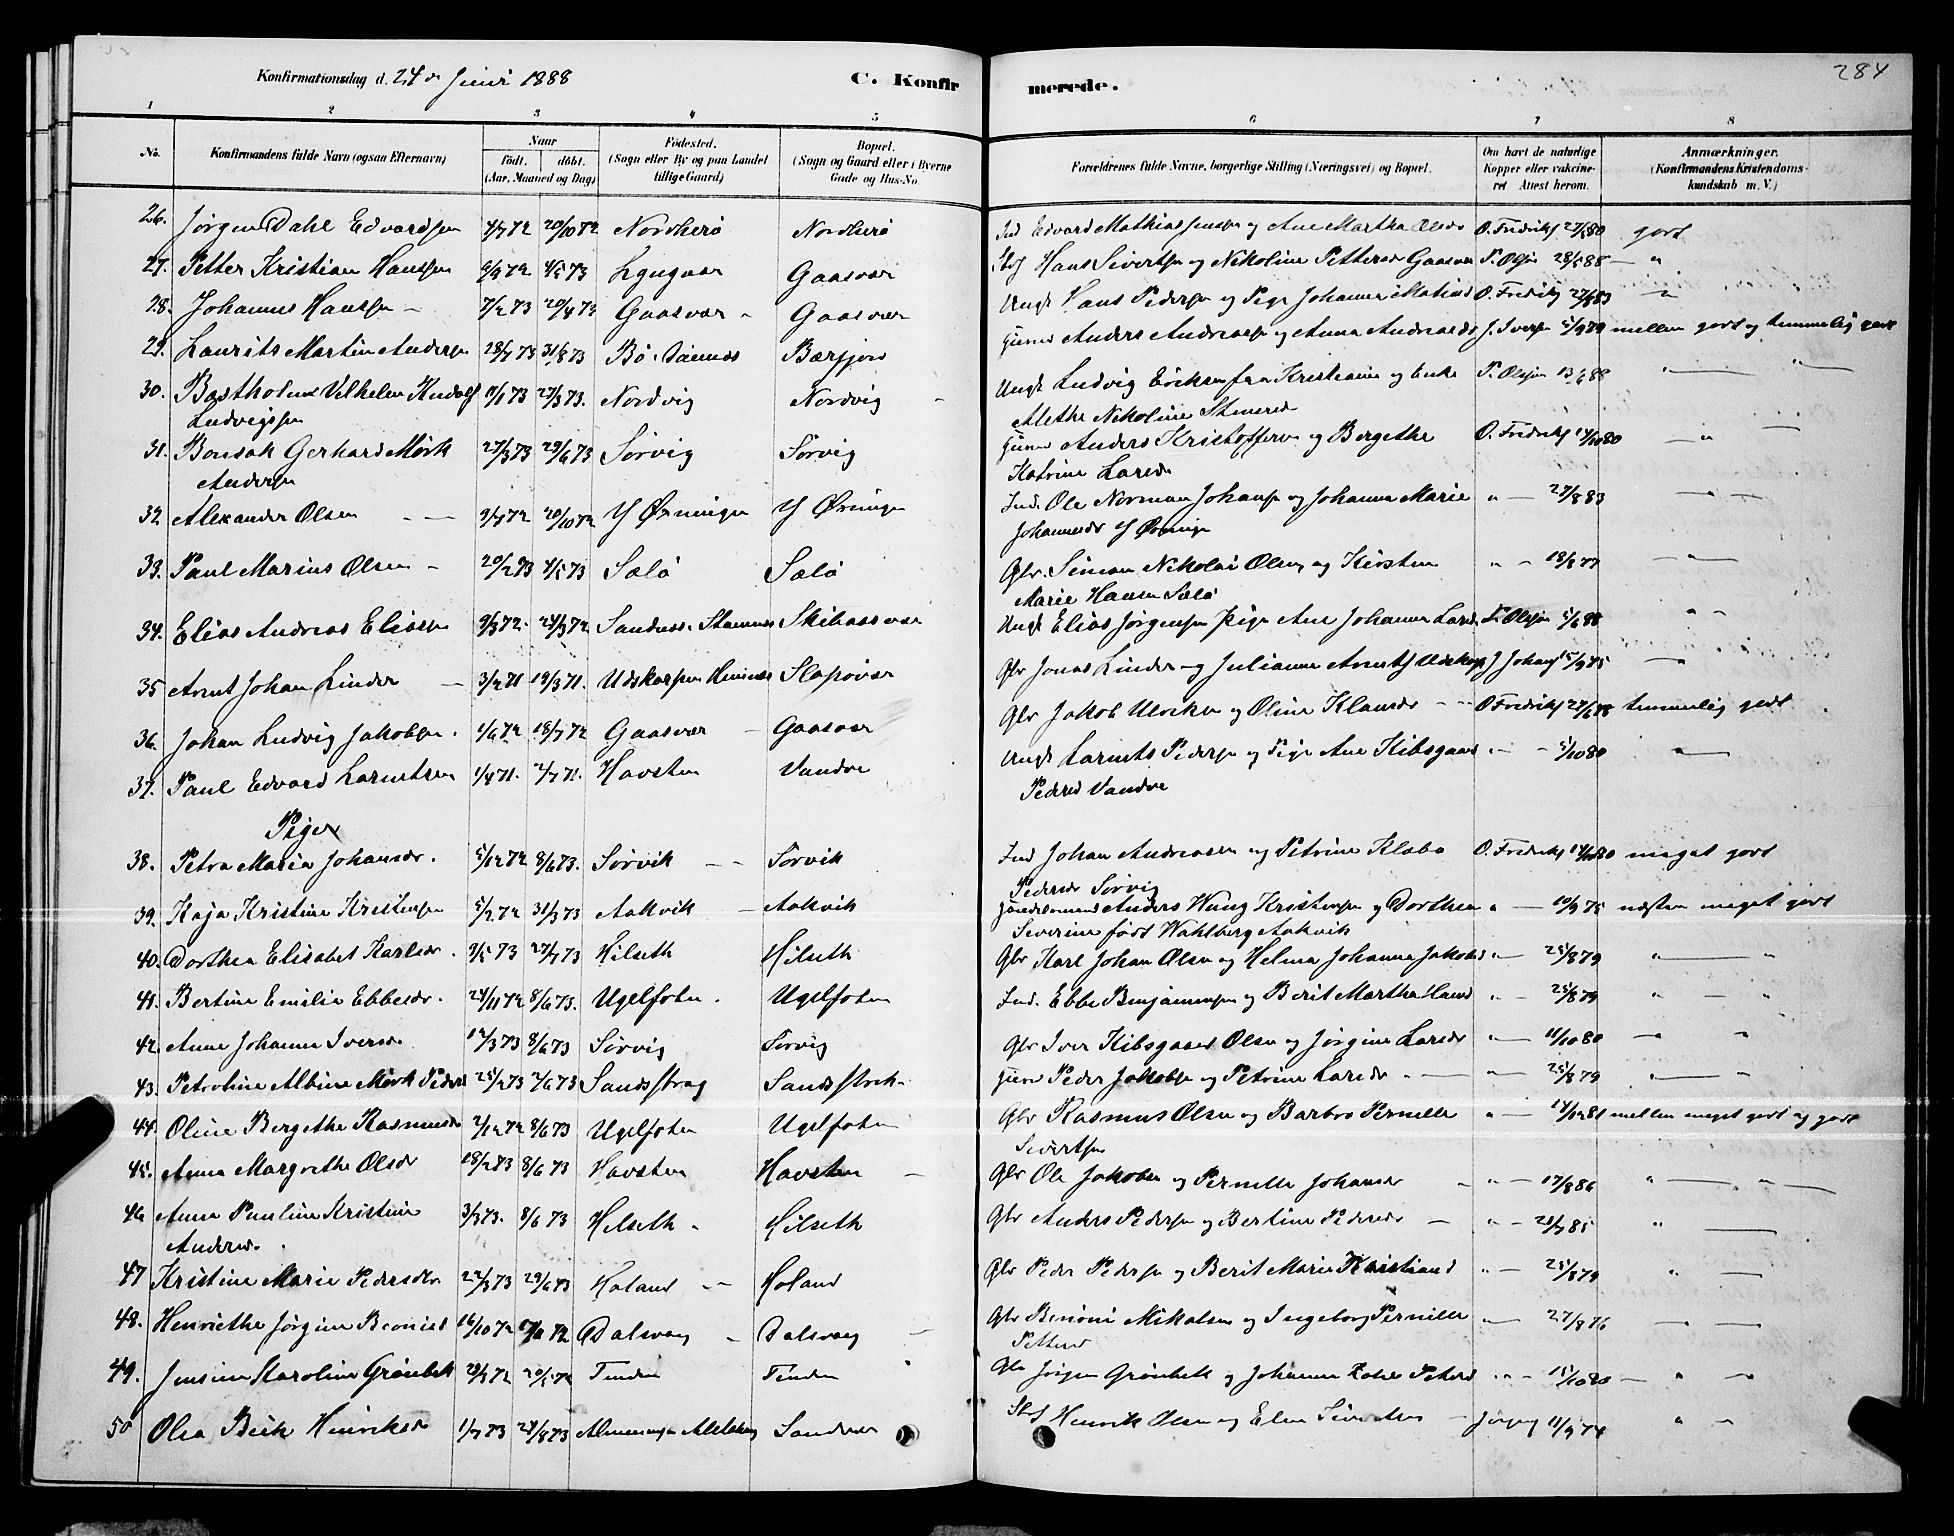 Konfirmationsdag d. 24de Juni 1888 C. Konfirmerede. 284
1 2 3 4 5 6 7 8
No. Konfirmandens fulde Navn (ogsaa Efternavn) Naar født. døbt. (Aar, Maaned og Dag) Fødested. (Sogn eller By og paa Landet tillige Gaard) Bopæl. (Sogn og Gaard eller i Byerne Gade og Hus-No. Forældrenes fulde Navne, borgerlige Stilling (Næringsvei) og Bopæl. Om havt de naturlige Kopper eller vakcineret. Attest herom. Anmærkninger. (Konfirmandens Kristendomskundskab m. V.)
26. Jørgen Dahl Edvardsen 4/7 72 20/10 72 Nordherø Nordherø Ind Edvard Mathias Jensen og Ane Martha Olsdr O. Fredriks 27/8 80 godt
27. Petter Kristian Hanssen 9/9 72 4/5 73 Lyngvær Gaasvær Hans Sivertsen og Nikoline Pettersd Gaasvær P. Olsen 28/5 88 — "
28. Johannes Hanssen — 7/2 73 20/4 73 Gaasvær " Gaasvær Ungk Hans Pedersen og Pige Johanna Matiasd O. Fredriks 27/8 83 "
29. Laurits Martin Andersen 28/7 73 31/8 73 Bø. Dønnes Bærfjord Anders Andreasen og Anna Andreasd J. Iversen 5/9 79 mellem godt og temmelig godt
30. Bastholm Vilhelm Rudolf 11/1 73 23/3 73. Nordvig Nordvig Ungk Ludvig Eriksen fra Kristiania og Enke P. Olsen 13/6 88 " "
Ludvigsen Alethe Nikoline Steensd
31. Bonsak Gerhard Mørk 27/3 73 29/6 73 Sørvig Sørvig Anders Kristoffersen og Bergethe O. Fredriks 14/10 80 — " —
Andersen Katrine Larsdr
32 Alexander Olsen — 9/7 72 20/10 72 Y Øksningen Y Øksningen Ind. Ole Norman Johansen og Johanna Marie " — 27/8 83 — " —
Johannesdr Y Øksningen
33. Paul Marius Olsen — 20/2 73 4/5 73 Sælø Sælø Gbr. Simon Nikolai Olsen og Kirsten " - 18/8 77 — " —
Marie Hansdr Sælø
34. Elias Andreas Eliassen 9/3 72. 24/3 72 Sandnes. Stamnes Skibaasvær Ungk Elias Jørgensen Pige Ane Johanna Larsd P. Olsen 5/6 88 " "
35 Arnt Johan Linder — 3/2 71 19/3 71. Udskarpen Hemnæs Slapøvær Gbr Jonas Linder og Julianna Arntsd Udskarpen J Johans 15/9 75 — " —
36. Johan Ludvig Jakobsen. 1/6 72 18/7 72 Gaasvær — Gaasvær Gbr Jakob Ulriksen og Oline Klausdr - - O Fredriks 27/6 78 temmelig godt
37. Paul Edvard Larntsen 1/4 71. 2/7 71. Havsten Vandve Ungk Larnts Pedersen og Pige Ane Kibsgaard " - 5/10 80 "
Pedersd Vandve
Piger
38. Petra Maria Johansdr. 5/12 72 8/6 73. Sørvik - - Sørvik Ind Johan Andreasen og Petrine Klaba O. Fredriks 14/10 80 meget godt
Pedersdr Sørvig
39. Kaja Kristine Kristensen 5/7 72 31/3 73 Aakvik — Aakvik Anders Wung Kristensen og Dorthea " — 10/9 75 næsten meget godt
Severine født Wahlberg Aakvik
40. Dorthea Elisabet Karlsdr. 9/5 73 27/7 73 Hilseth Hilseth Gbr Karl Johan Olsen og Helma Johanna Jakobsd " — 25/8 79 " — "
41. Bertine Emilie Ebbesdr. 24/11 72 8/6 73. Ugelfoten. Ugelfoten Ind. Ebbe Benjaminsen og Berit Martha Hansd " — 25/8 79 " — "
42. Anna Johanna Iversdr. 12/3 73 8/6 73 Sørvig Sørvig Gbr Iver Kibsgaard Olsen og Jørgine Larsdr " — 11/10 80 " "
43. Petroline Albine Mørk Pedersd 25/2 73 2/6 73 Sandsstrag Sandsstrak. Peder Jakobsen og Petrine Larsdr — " — 25/8 79 " —
44. Oline Bergethe Rasmusdr 2/12 72 8/6 73 Ugelfoten Ugelfoten Gbr Rasmus Olsen og Barbro Pernille " — 14/12 81 mellem meget godt og godt
Sivertsen
45. Anna Margrethe Olsdr 18/2 73 8/6 73 Havsten Havsten — Gbr Ole Jakobsen og Pernille Johansdr " — 17/8 86 " — " —
46 Anna Pauline Kristine 3/3 73. 8/6 73 Hilseth - Hilseth Gbr Anders Pedersen og Bertine Pedersdr — " - 21/7 85 " —
Andersd.
47 Kristine Marie Pedersdr 22/3 73 29/6 73 Høland - - Høland Gbr Peder Pedersen og Berit Marie Kristiansd " - 25/8 79 " —
48. Henriethe Jørgine Beonisd 16/10 72 17/11 72 Dalsvaag — Dalsvaag Gbr Benoni Mikalsen og Ingeborg Pernille " — 27/8 76 — —
Pettersd
49. Jensine Karoline Grønbek 29/3 72 20/5 72 Tenden Tenden Gbr Jørgen Grønbek og Johanna Petersd " - 15/10 80 — " "
50 Olea Beck Henriksd 1/7 73 24/8 73 Sandvær Henrik Olsen og Elen — 11/9 74 " "